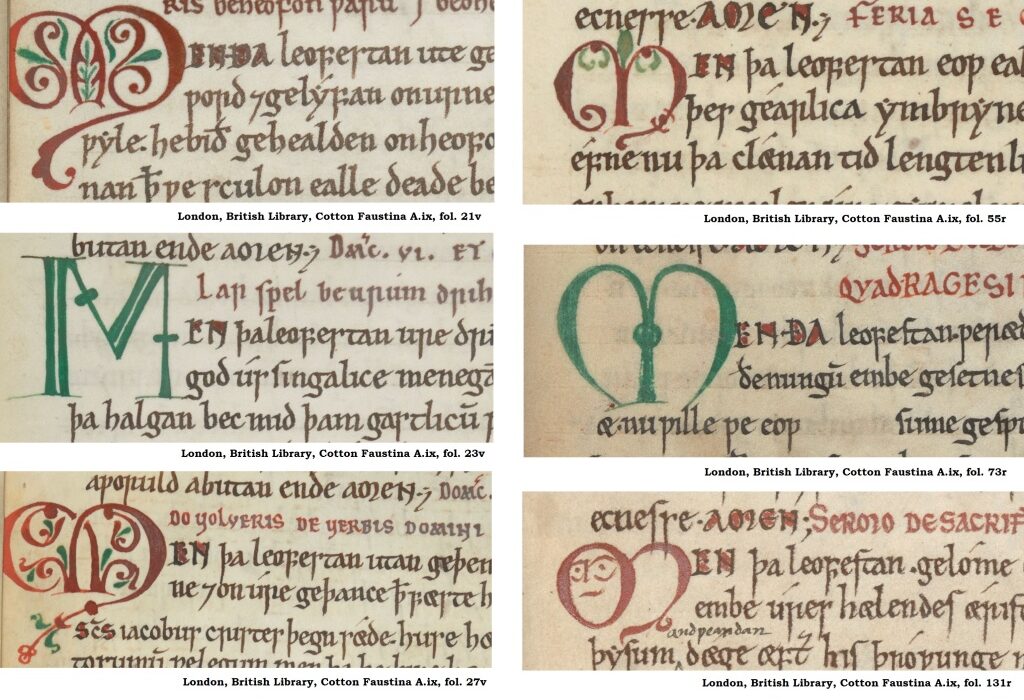 MEN ÐA leofestan ute ge
ƿord ⁊ gelyfan on urne
ƿyle. he bið gehealden on heofo
nan ꝥ ƿe sculon ealle deade be
London, British Library, Cotton Faustina A.ix, fol. 21v
butan ende AMEN.; DOMC. VI. ET
Las spel beurum drih
MEN þa leofestan ure dri
god us singalice menegað
þa halgan bec mid þam gastlicū
London, British Library, Cotton Faustina A.ix, fol. 23v
aƿoruld abutan ende AMEN.; DOMC.
DO UOLUERIS DE UERBIS DOMINI
MEN þa leofestan utan geþen
ne ⁊ on ure geþance
scs iacobus cristes þegn ræde. hure
London, British Library, Cotton Faustina A.ix, fol. 27v
ecnesse. AMEN.; FERIA SEC
MEN þa leofestan eoƿ eal
þer gearlica ymbryne
efne nu þa clænan tid lengten
London, British Library, Cotton Faustina A.ix, fol. 55r
QUADRAGESI
MEN ÐA leofestan. ƿe ræd
denungū embe gesetnes
æ. nu ƿille ƿe eoƿ sume
London, British Library, Cotton Faustina A.ix, fol. 73r
ecnesse. AMEN; SERMO DE SACRIF
MEN þa leofestan. gelome
embe ures hælendes ærist
andƿeardan
þysum dæge æft his þroƿunge
London, British Library, Cotton Faustina A.ix, fol. 131r